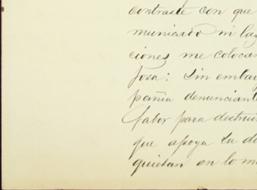 contraste con que
municado ni las
ciones me coloca
josa: Sin embar
pañia denunciant
labor para destrui
que apoya la de
quietan en lo m